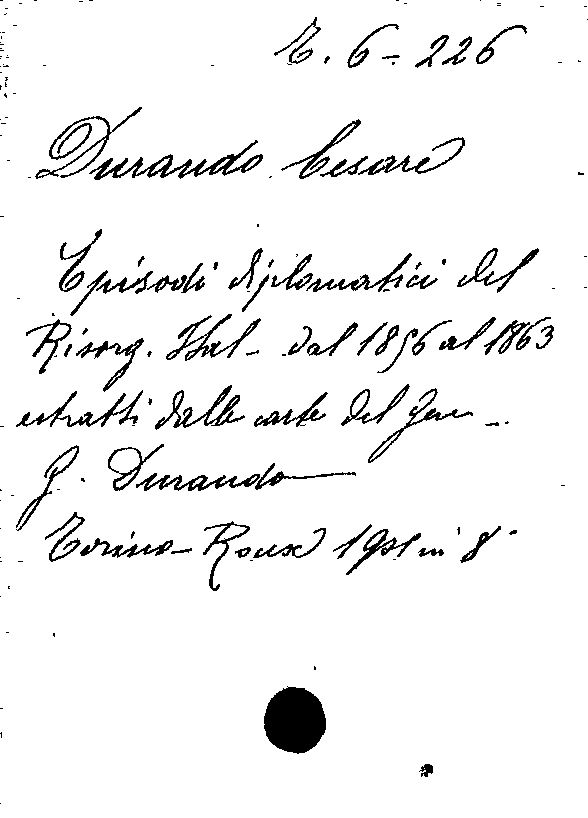 E. 6 - 226
Durando Cesare
Episodi diplomatici del
Risorg. Ital - dal 1856 al 1863
estratti dalle carte del Gen -.
G. Durando
Torino - Roux 1901 in 8°